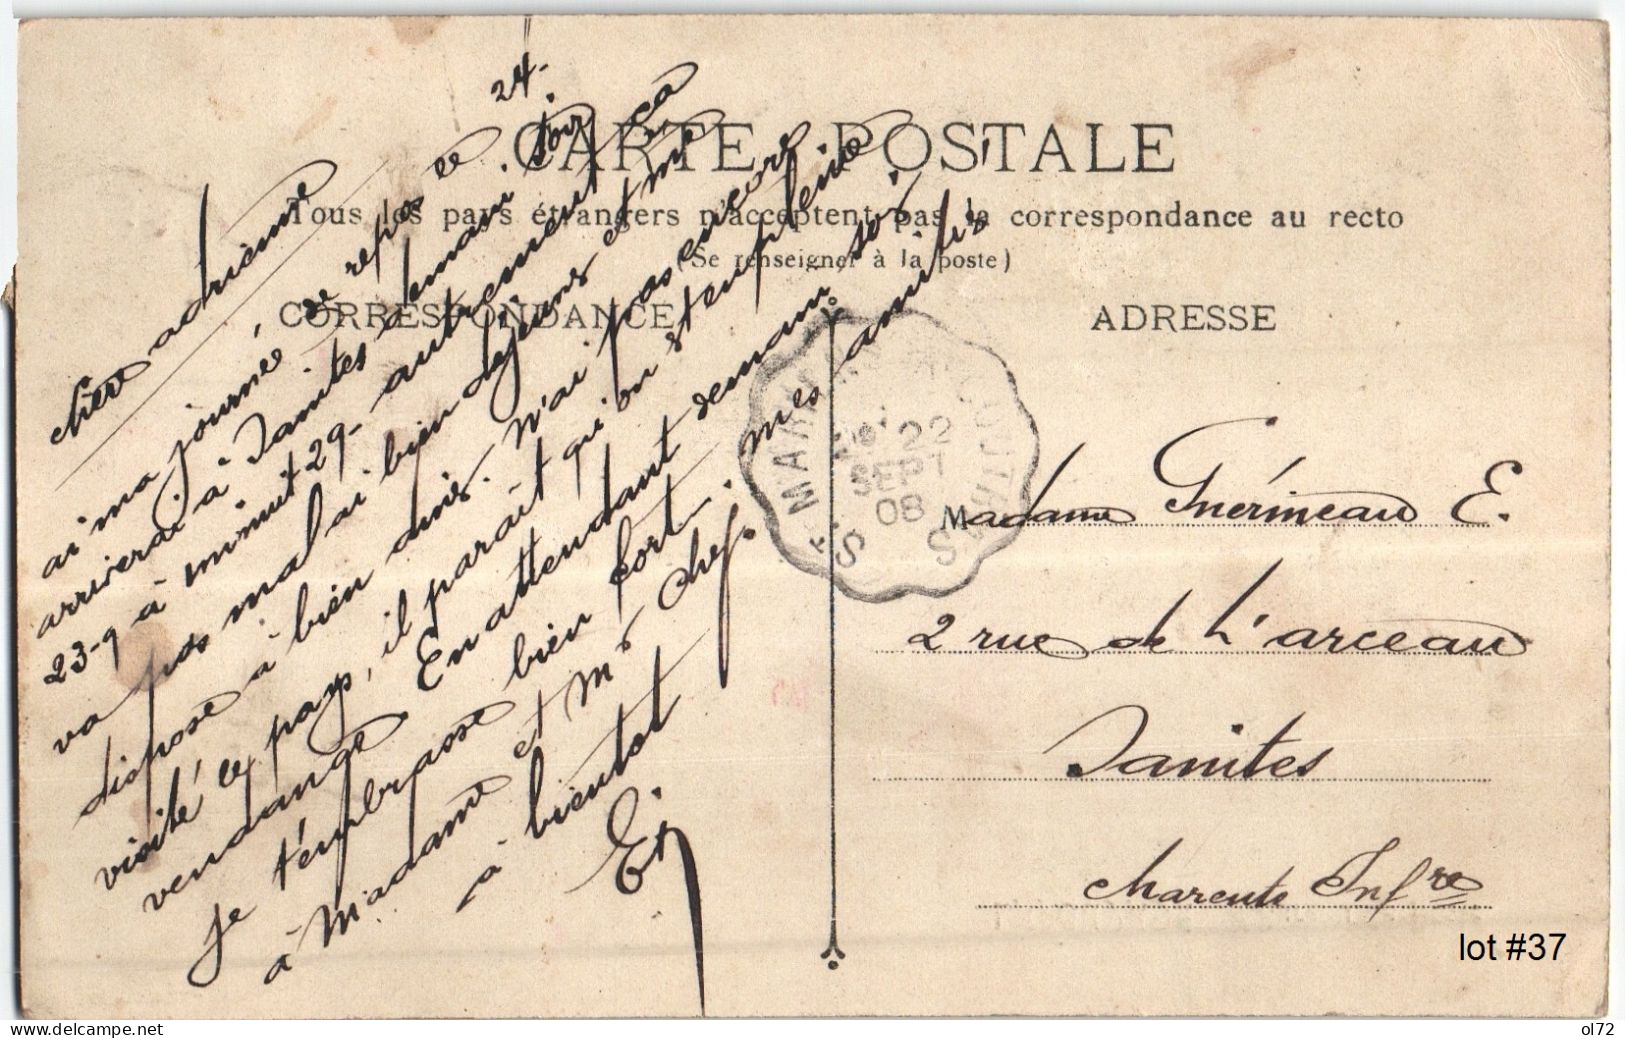 CARTE POSTALE
Tous les pays étrangers n'acceptent pas la correspondance au recto
(Se renseigner à la poste)
CORRESPONDANCE
ADRESSE
24-
chère adrienne
ai ma journée de repos ce
arriverai à Saintes demain soir
23-9 à minuit 29- autrement ça
va pas mal ai bien déjeuné et me
dispose à bien dîner. N'ai pas encore
visité ce pays, il paraît qu'on est en pleine
vendange En attendant demain soir
je t'embrasse bien fort. mes amitiés
à Madame et Mr Chef.
à bientôt
E.
22
SEPT
08
Madame Guérineau E.
2 rue de L'arceau
Saintes
Charente Infre
lot #37
delcampe.net
ol72